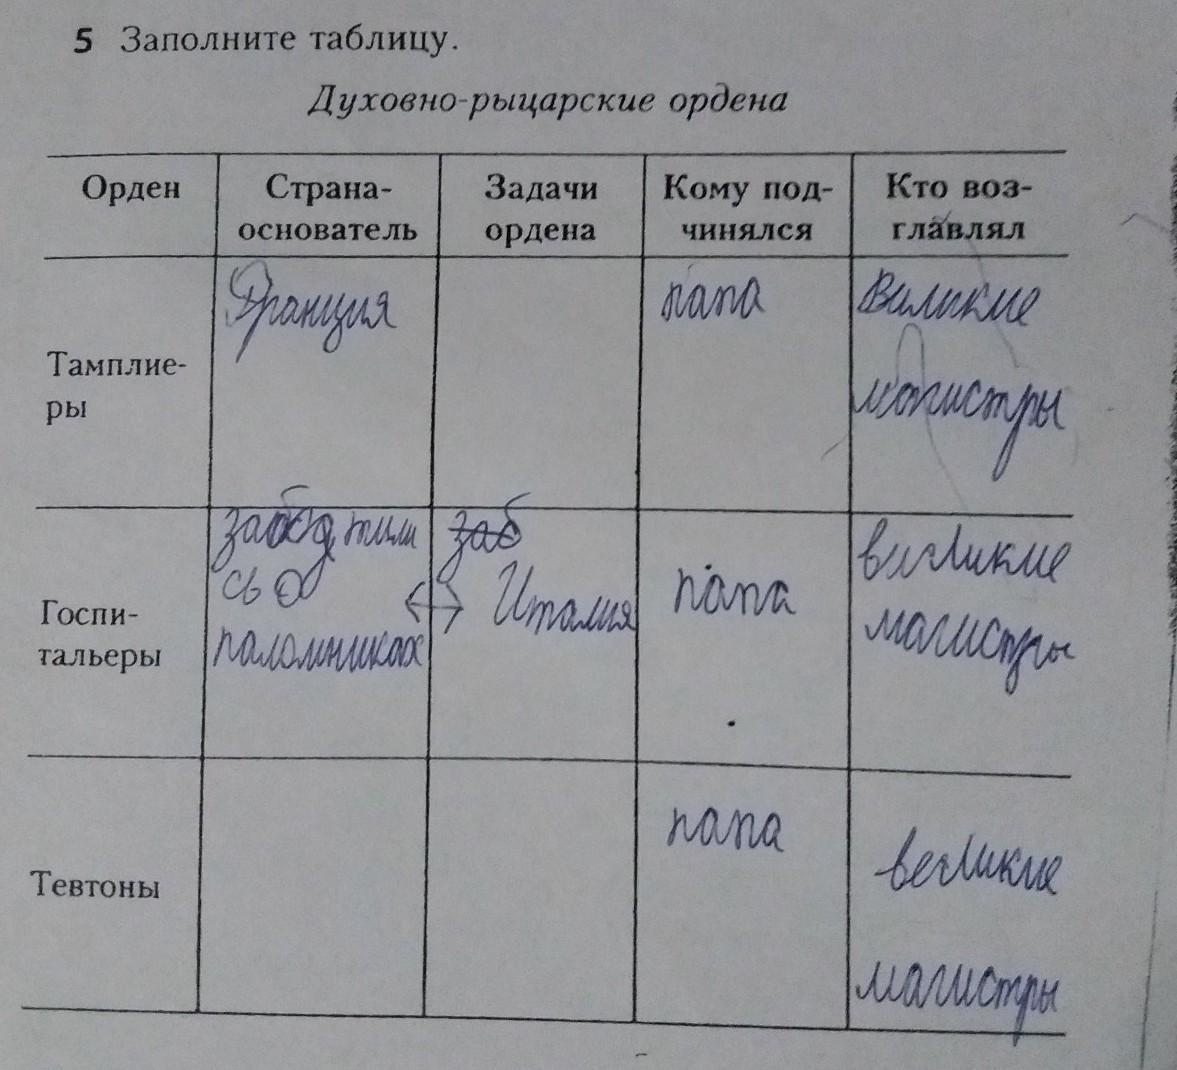 5 Заполните таблицу.
Духовно-рыцарские ордена
Орден
Страна-
основатель
Задачи
ордена
Кому под-
чинялся
Кто воз-
главлял
Тамплие-
ры
Франция
папа
Великие
магистры
Госпи-
тальеры
заботили
сь о
паломниках
заб
Италия
папа
великие
магистры
Тевтоны
папа
великие
магистры